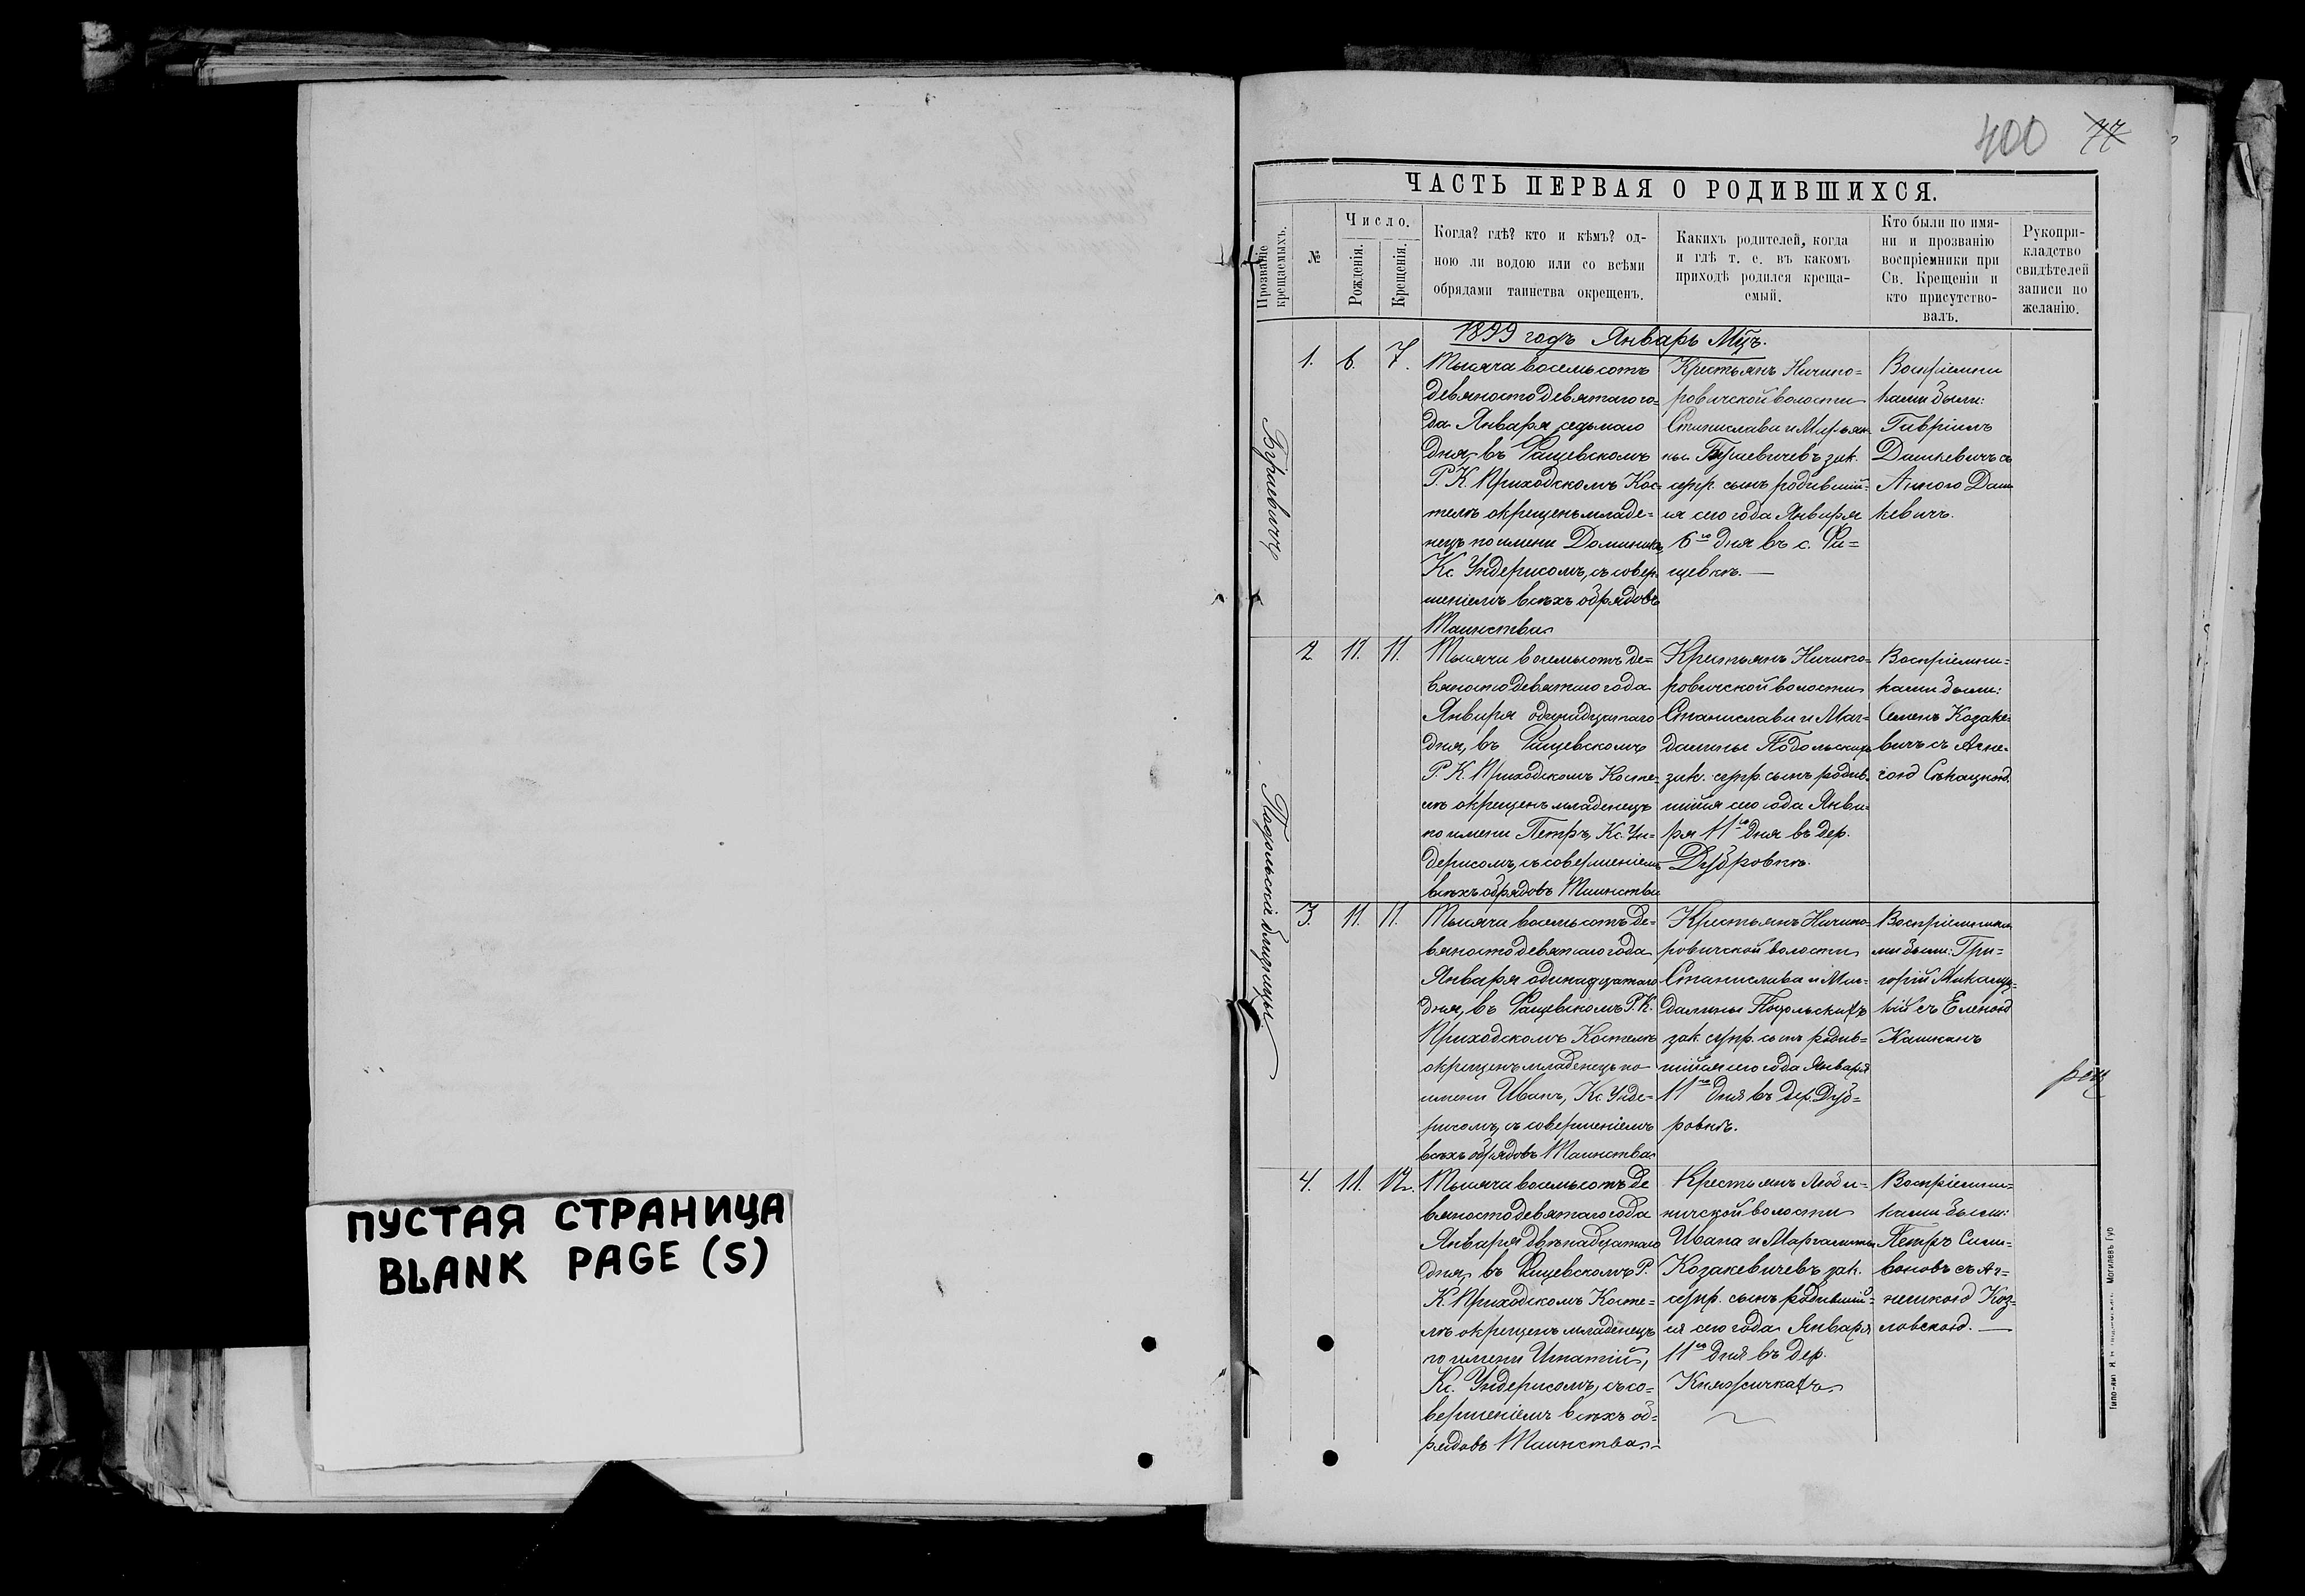 ПУСТАЯ СТРАНИЦА
BLANK PAGE (S)
400 77
ЧАСТЬ ПЕРВАЯ О РОДИВШИХСЯ.
Прозваніе
крещаемыхъ.
№
Число.
Рожденія.
Крещенія.
Когда? гдѣ? кто и кѣмъ? од-
ною ли водою или со всѣми
обрядами таинства окрещенъ.
Какихъ родителей, когда
и гдѣ т. е. въ какомъ
приходѣ родился креща-
емый.
Кто были по имя-
ни и прозванію
воспріемники при
Св. Крещеніи и
кто присутство-
валъ.
Рукопри-
кладство
свидѣтелей
записи по
желанію.
1899 годъ Январь Мцъ.
1. 6. 7.
Тысяча восемьсотъ
девяносто девятаго го=
да Января седьмаго
дня, въ Фащевскомъ
Р. К. Приходскомъ Кос=
телѣ окрещенъ младе=
нецъ по имени Доминикъ,
Кс. Ундерисомъ, съ совер=
шеніемъ всѣхъ обрядовъ
Таинства
Крестьянъ Ничипо=
ровичской волости
Станислава и Марьян=
ны зак.
супр. сынъ родившій=
ся сего года Января
6го дня въ с. Фа=
щевкѣ.—
Воспріемни
ками были:
Гавріилъ
Дашкевичъ съ
Анною Даш
кевичъ.
2 11. 11.
Тысяча восемьсотъ де=
вяносто девятаго года
Января одинадцатаго
дня, въ Фащевскомъ
Р. К. Приходскомъ Косте=
лѣ окрещенъ младенецъ
по имени Петръ, Кс. Ун=
дерисомъ, съ совершеніемъ
всѣхъ обрядовъ Таинства
Крестьянъ Ничипо=
ровичской волости
Станислава и Маг=
далины Подольскихъ
зак. супр. сынъ родив=
шійся сего года Янва=
ря 11го дня въ дер.
Дубровкѣ.
Воспріемни=
ками были:
Семенъ Козаке=
вичъ съ Агне=
сою
Подольскіе близнецы
3. 11. 11.
Тысяча восемьсотъ де=
вяносто девятаго года
Января одинадцатаго
дня, въ Фащевскомъ Р. К.
Приходскомъ Костелѣ
окрещенъ младенецъ по
имени Иванъ, Кс. Унде=
рисомъ, съ совершеніемъ
всѣхъ обрядовъ Таинства
Крестьянъ Ничипо=
ровичской волости
Станислава и Маг=
далины Подольскихъ
зак. супр. сынъ родив=
шійся сего года Января
11го дня въ дер. Дуб=
ровкѣ.
Воспріемника
ми были: Гри=
горій
съ Еленою
4. 11. 12.
Тысяча восемьсотъ де
вяносто девятаго года
Января двѣнадцатаго
дня, въ Фащевскомъ Р.
К. Приходскомъ Косте=
лѣ окрещенъ младенецъ
по имени Игнатій,
Кс. Ундерисомъ, съ со=
вершеніемъ всѣхъ об=
рядовъ Таинства
Крестьянъ
волости
Ивана и Маргариты
Козакевичевъ зак.
супр. сынъ родившій=
ся сего года Января
11го дня въ дер.
Княжичкахъ
Воспріемни=
ками были:
Петръ
съ Аг=
нешкою Коз=
ловскою.—